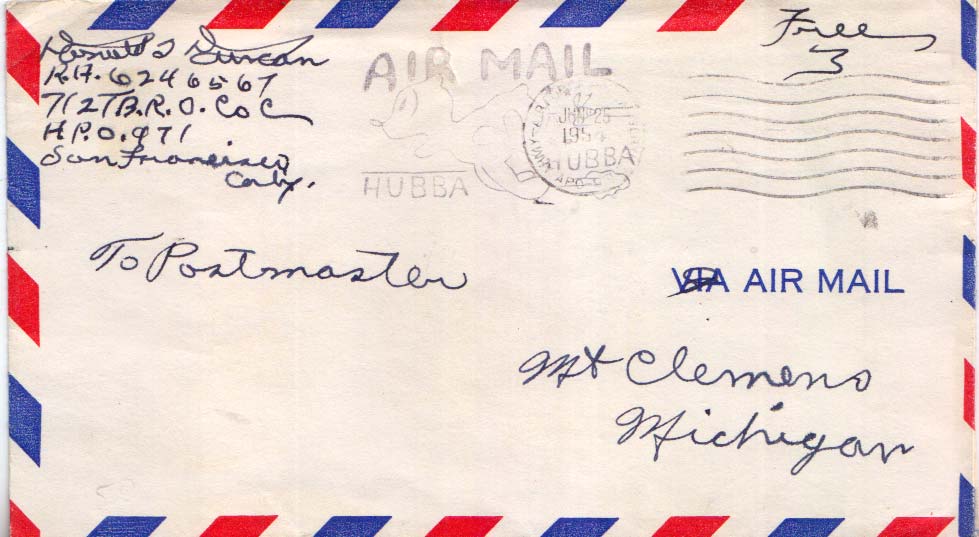 Donald T Duncan
R.A. 6246567
712 T.R.O. Co C
A.P.O. 971
San Francisco
Calif.
Free
AIR MAIL
HUBBA
JUN 25
195
HUBBA
To Postmaster
VIA AIR MAIL
Mt Clemens
Michigan